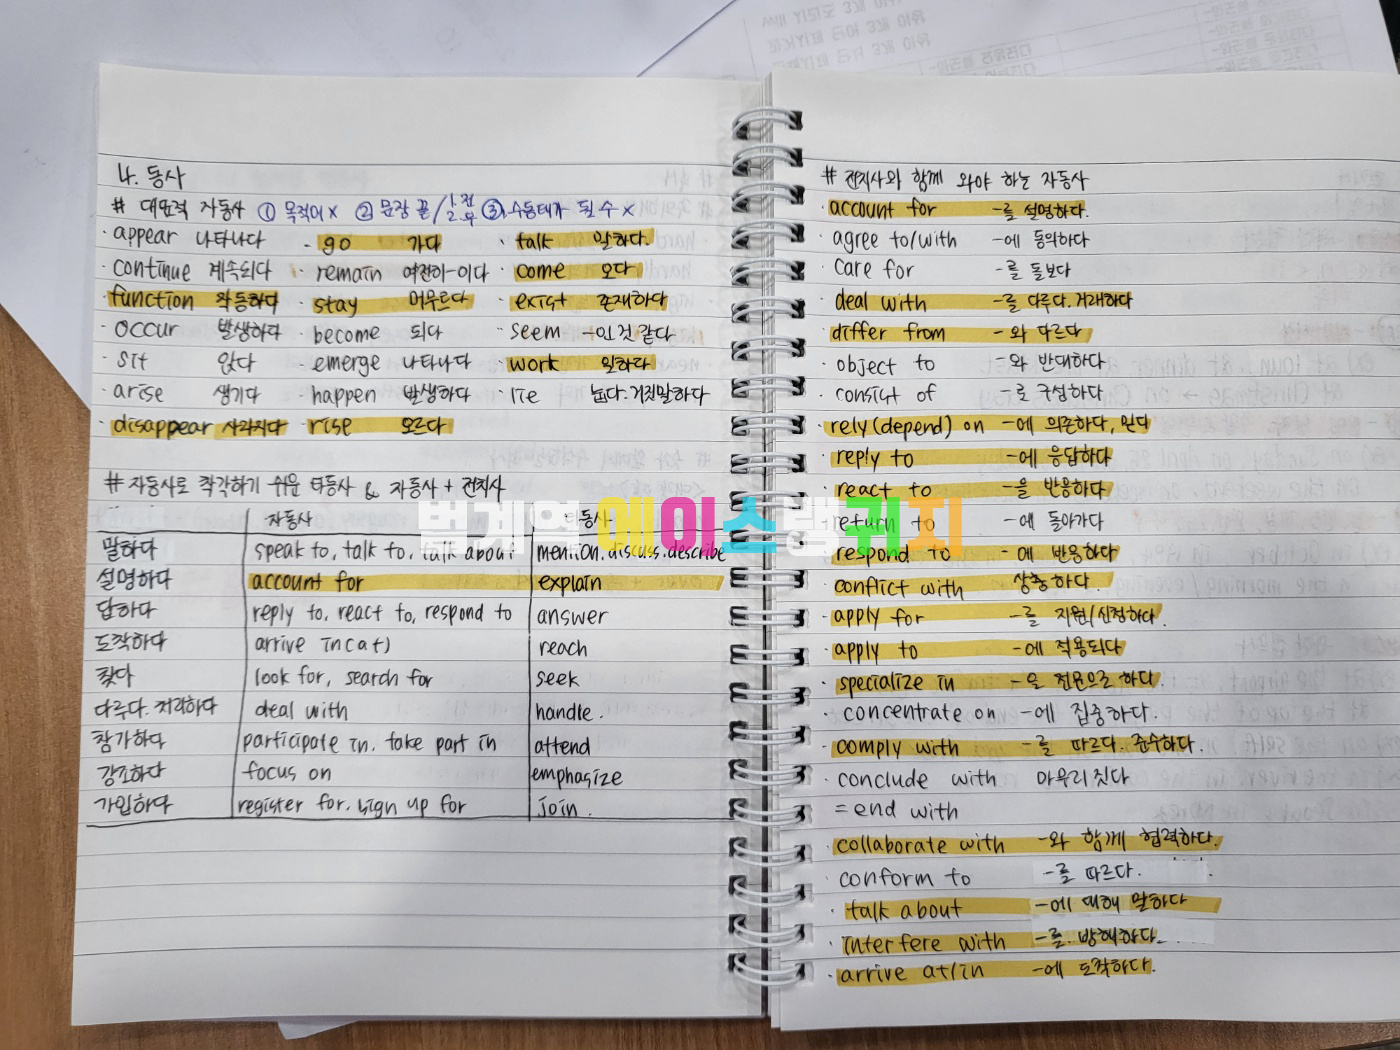 4. 동사
# 대표적 자동사 ① 목적어 x ② 문장 끝 / 1.전 2.부 ③ 수동태가 될 수 x
· appear 나타나다 · go 가다 · talk 말하다
· continue 계속되다 · remain 여전히-이다 · come 오다
· function 작동하다 · stay 머무르다 · exist 존재하다
· occur 발생하다 · become 되다 · seem -인 것 같다
· sit 앉다 · emerge 나타나다 · work 일하다
· arise 생기다 · happen 발생하다 · lie 눕다. 거짓말하다
· disappear 사라지다 · rise 오르다
# 자동사로 착각하기 쉬운 타동사 & 자동사 + 전치사
자동사 타동사
말하다 speak to, talk to, talk about mention, discuss, describe
설명하다 account for explain
답하다 reply to, react to, respond to answer
도착하다 arrive in(at) reach
찾다 look for, search for seek
다루다. 처리하다 deal with handle.
참가하다 participate in, take part in attend
강조하다 focus on emphasize
가입하다 register for, sign up for join.
# 전치사와 함께 와야 하는 자동사
· account for -를 설명하다.
· agree to/with -에 동의하다
· care for -를 돌보다
· deal with -를 다루다. 거래하다
· differ from -와 다르다
· object to -와 반대하다
· consist of -로 구성하다
· rely (depend) on -에 의존하다, 믿다
· reply to -에 응답하다
· react to -을 반응하다
· return to -에 돌아가다
· respond to -에 반응하다
· conflict with 상충하다.
· apply for -를 지원/신청하다.
· apply to -에 적용되다
· specialize in -을 전문으로 하다.
· concentrate on -에 집중하다.
· comply with -를 따르다. 준수하다.
· conclude with 마무리 짓다
= end with
· collaborate with -와 함께 협력하다.
· conform to -를 따르다.
· talk about -에 대해 말하다
· interfere with -를 방해하다.
· arrive at/in -에 도착하다.
벌게역 에이스방귀지